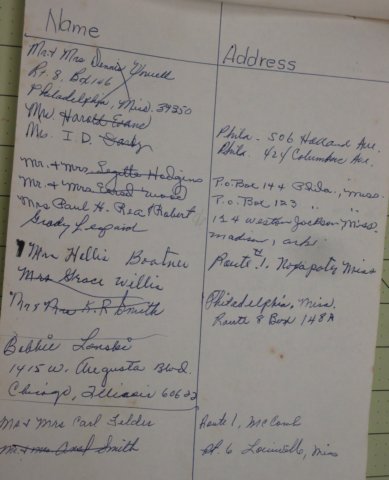 Name Address
Mr + Mrs Dennis Yowell
Rt. 8. Box 146
Philadelphia, Miss. 39350
Mr. Harold Evans Phila - 506 Holland Ave.
Mrs. I. D. Phila. 424 Columbus Ave.
Mr. + Mrs Hodgins P.O Box 144 Phila., Miss.
Mr. + Mrs. Wood P.O. Box 123 " "
Mrs Paul H. Rea / Robert 124 Weston Jackson Miss.
Grady Leopard Madison, Ark.
Mrs Hellie Boatner Route 1. Noxapater Miss
Mrs Grace Willis
Mr + Mrs K. R Smith Philadelphia, Miss.
Route 8 Box 148A
Bobbie Lenski
1415 W. Augusta Blvd.
Chicago, Illinois 60622
Mr + Mrs Carl Felder Route 1, McComb
Mr. + Mrs Smith Rt. 6 Louisville, Miss